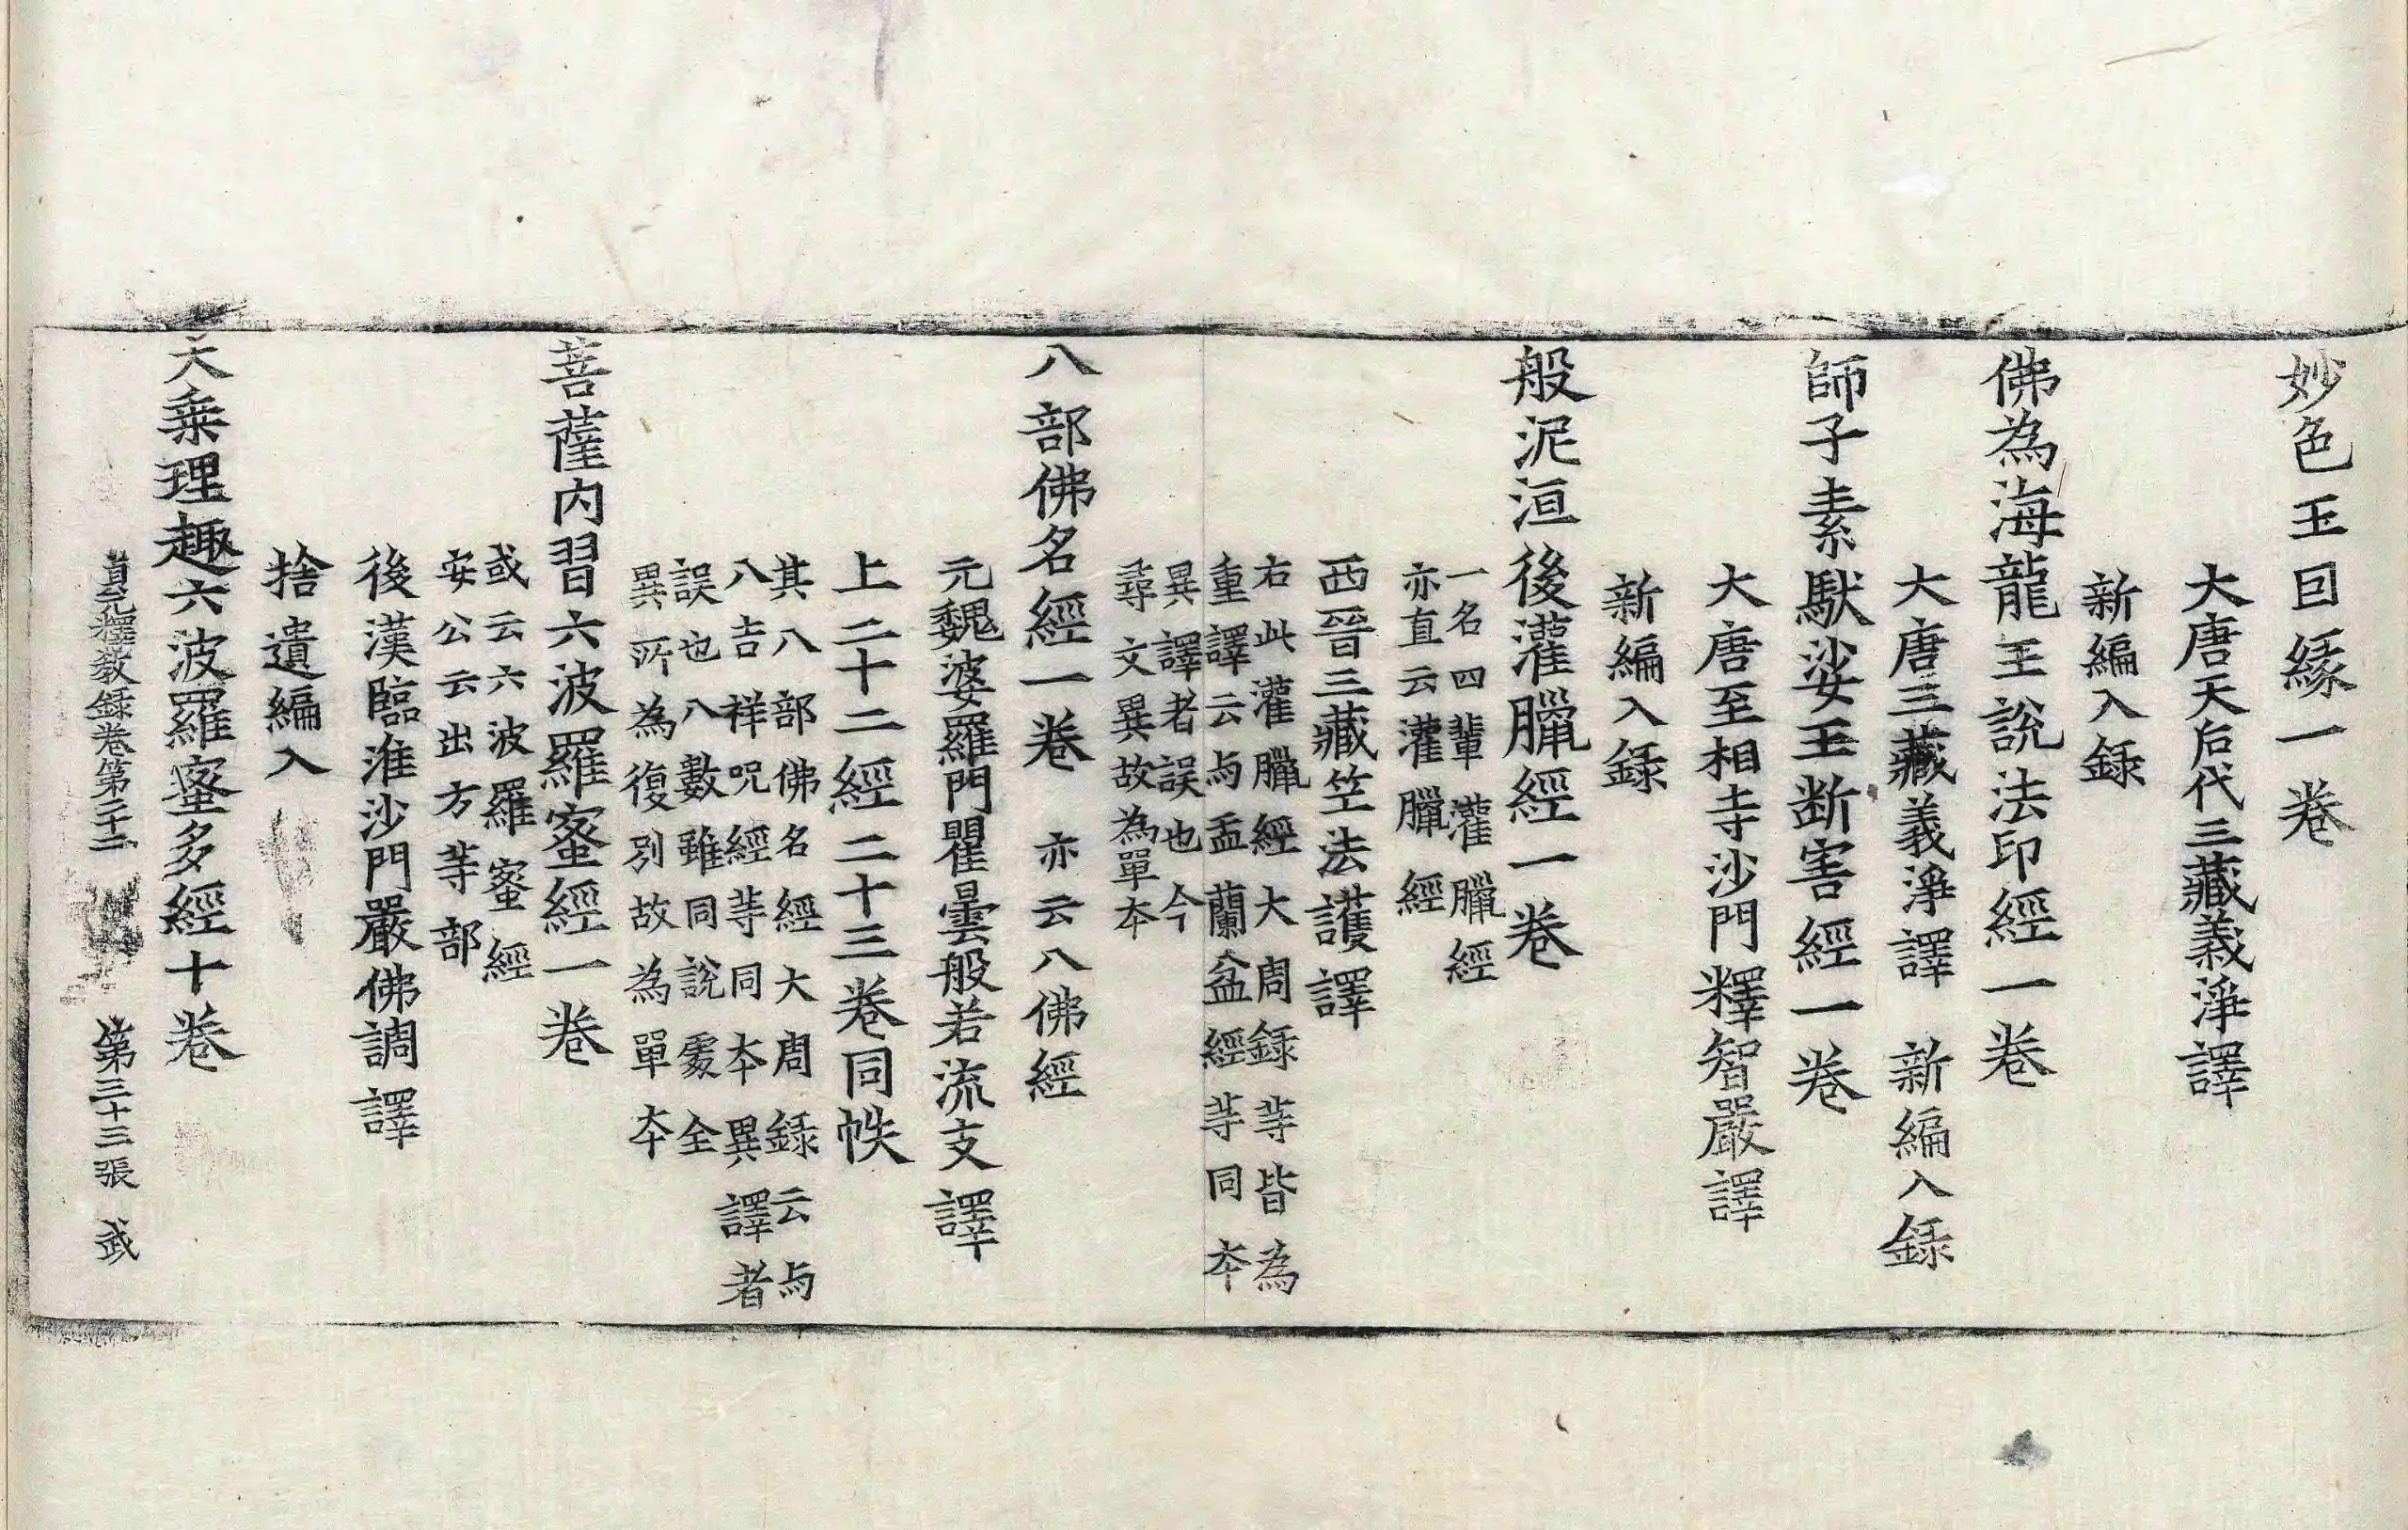 妙色王因緣一卷
大唐天后代三藏義淨譯
新編入録
佛為海龍王說法印經一卷
大唐三藏義淨譯　新編入録
師子素馱娑王断害經一卷
大唐至相寺沙門釋智嚴譯
新編入録
般泥洹後灌臘經一卷
一名四輩灌臘經
亦直云灌臘經
西晉三藏竺法護譯
右此灌臘經大周録等皆為
重譯云与盂蘭盆經等同本
異譯者誤也今
尋文異故為單本
八部佛名經一卷　亦云八佛經
元魏婆羅門瞿曇般若流支譯
上二十二經二十三卷同帙
其八部佛名經大周録云与
八吉祥呪經等同本異譯者
誤也八數雖同說處全
異所為復別故為單本
菩薩内習六波羅蜜經一卷
或云六波羅蜜經
安公云出方等部
後漢臨淮沙門嚴佛調譯
捨遺編入
大乘理趣六波羅蜜多經十卷
貞元釋教録卷第二十二　第三十三張　武